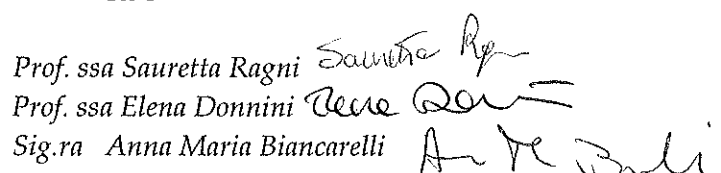 Prof. ssa Sauretta Ragni Sauretta Ragni
Prof. ssa Elena Donnini Elena Donnini
Sig.ra Anna Maria Biancarelli